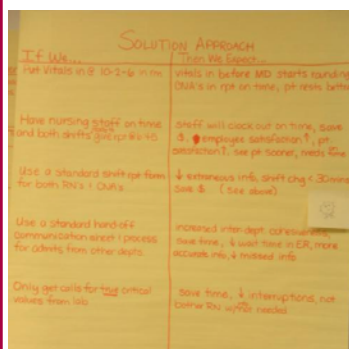 SOLUTION APPROACH
If We... Then We Expect...
Put Vitals in @ 10-2-6 in rm
vitals in before MD starts rounding
CNA's in rpt on time, pt rests better
Have nursing staff on time
and both shifts give rpt
Staff will clock out on time, save
$, employee satisfaction ↑, pt.
satisfaction ↑, see pt sooner, needs
Use a standard shift rpt form
for both RN's + CNA's
↓ extraneous info, shift chg < 30 mins
save $ (see above)
Use a standard hand off
communication sheet + process
for admits from other depts
increased inter dept.
save time, ↓ wait time in ER, more
accurate info, ↓ missed info
Only get calls for true critical
values from lab
save time, ↓ interruptions, not
bother RN when needed